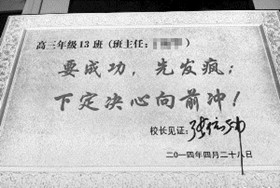 高三年级13班（班主任：
要成功，先发疯；
下定决心向前冲！
校长见证：
二〇一四年四月二十八日